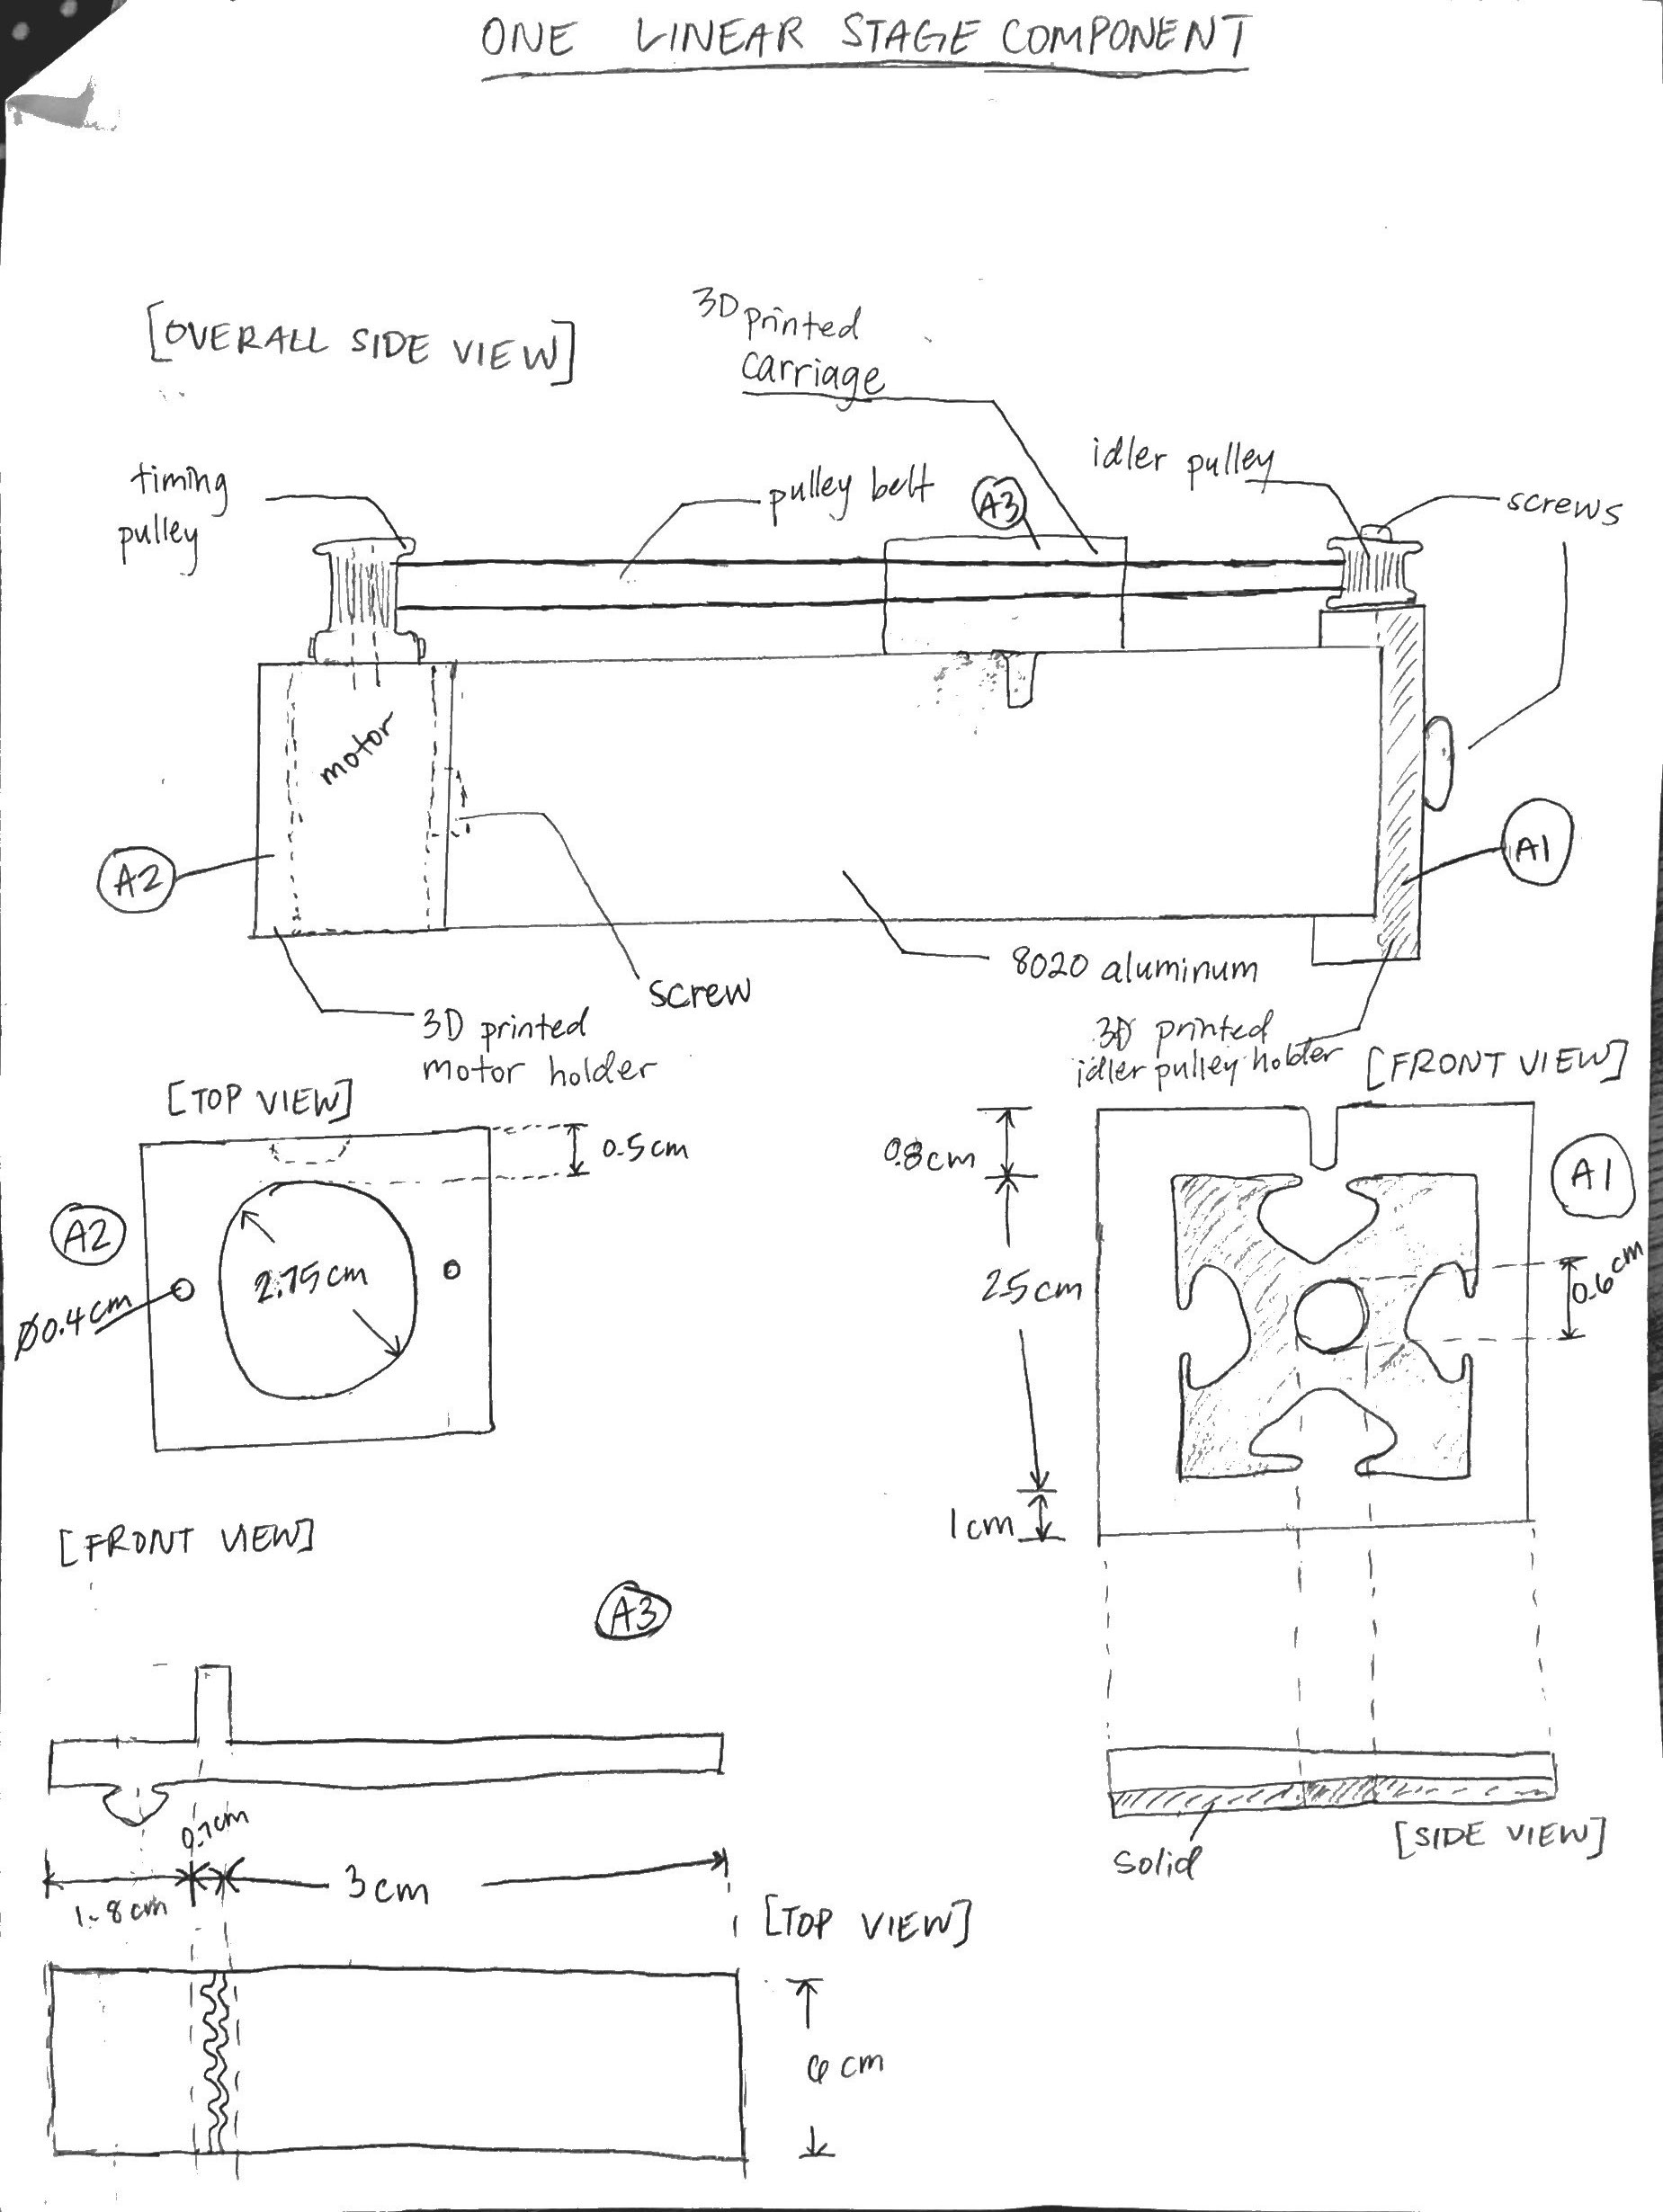 ONE LINEAR STAGE COMPONENT
[OVERALL SIDE VIEW]
3D printed
carriage
timing
pulley
pulley belt
A3
idler pulley
screws
motor
A2
A1
screw
8020 aluminum
3D printed
motor holder
3D printed
idler pulley holder
[TOP VIEW]
[FRONT VIEW]
0.5cm
A2
2.75cm
Ø0.4cm
0.8cm
A1
2.5cm
0.6cm
1cm
[FRONT VIEW]
A3
0.7cm
1.8cm
3cm
solid
[SIDE VIEW]
[TOP VIEW]
6cm